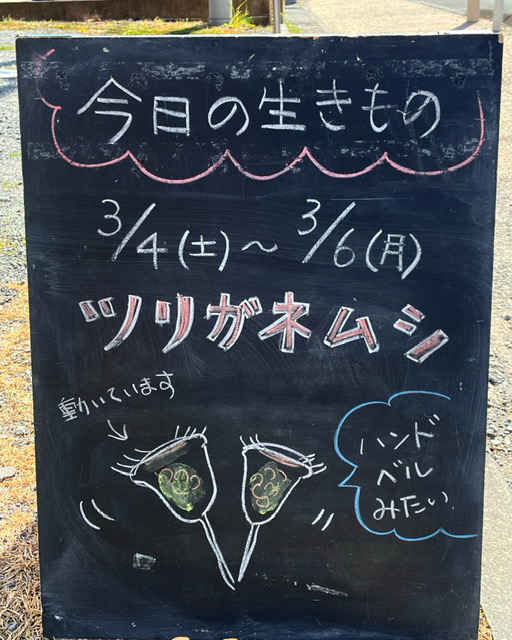 今日の生きもの
3/4(土)〜3/6(月)
ツリガネムシ
動いています
ハンド
ベル
みたい